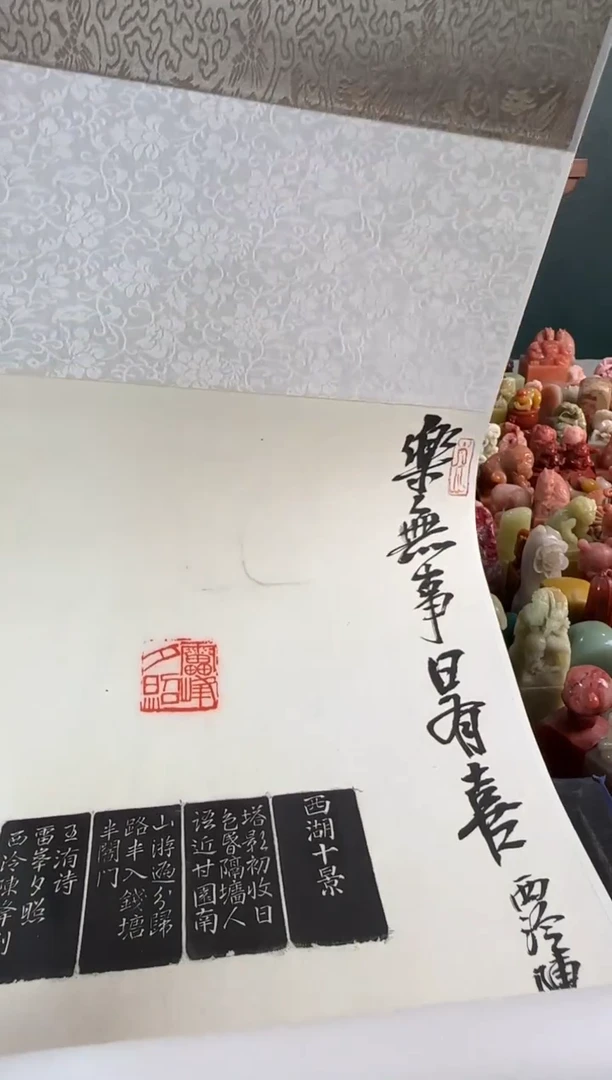 樂無事日有喜
西泠陳
雷峰夕照
西湖十景
塔影初收日
色昏隔墻人
语近甘園南
山游遍分歸
路半入錢塘
半闇門
王洧诗
雷峯夕照
西泠陳